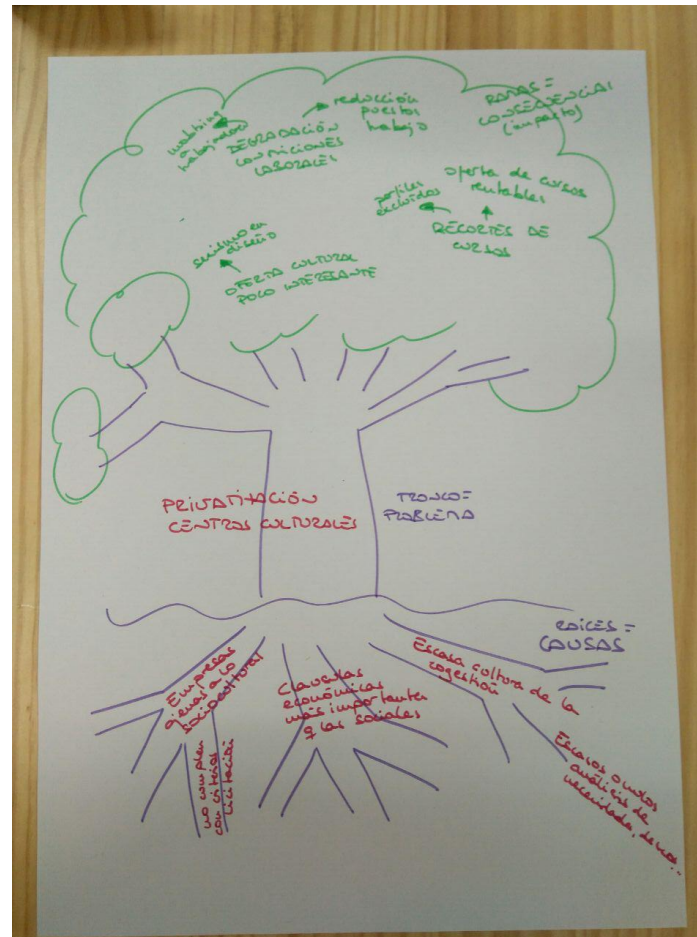 mobbing
a
trabajadores
DEGRADACIÓN
CONDICIONES
LABORALES
reducción
puestos
trabajo
RAMAS =
CONSECUENCIAS
(impacto)
oferta de cursos
rentables
perfiles
excluidos
RECORTES DE
CURSOS
sexismo en
diseño
OFERTA CULTURAL
POCO INTERESANTE
PRIVATIZACIÓN
CENTROS CULTURALES
TRONCO =
PROBLEMA
RAÍCES =
CAUSAS
Empresas
ajenas a lo
sociocultural
no cumplen
con criterios
licitación
Clausulas
económicas
más importantes
q las sociales
Escasa cultura de la
cogestión
Escasos o nulos
análisis de
necesidades, de